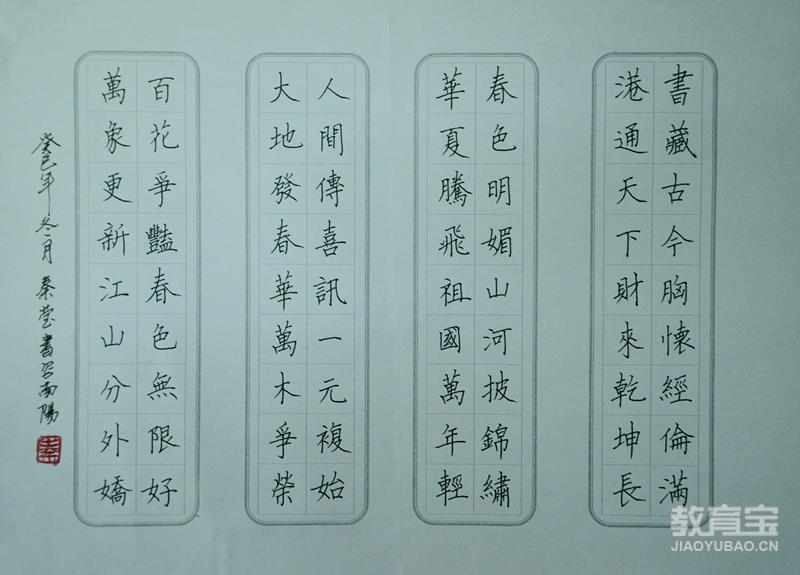 書藏古今胸懷經倫滿
港通天下財來乾坤長
春色明媚山河披錦繡
華夏騰飛祖國萬年輕
人間傳喜訊一元複始
大地發春華萬木爭榮
百花爭豔春色無限好
萬象更新江山分外嬌
癸巳年冬月秦瑩書於南陽
教育宝
JIAOYUBAO.CN